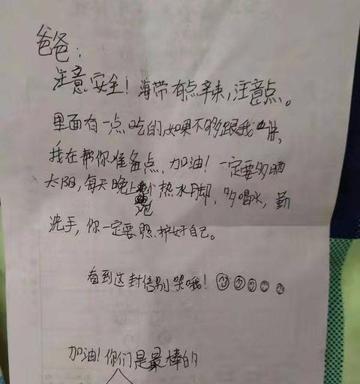 爸爸：
注意安全！海带有点辛辣，注意点。
里面有一点吃的，如果不够跟我
我在帮你准备点，加油！一定要多晒
太阳，每天晚上泡热水脚，多喝水，勤
洗手，你一定要照护好自己。
看到这封信别哭哦！
加油！你们是最棒的